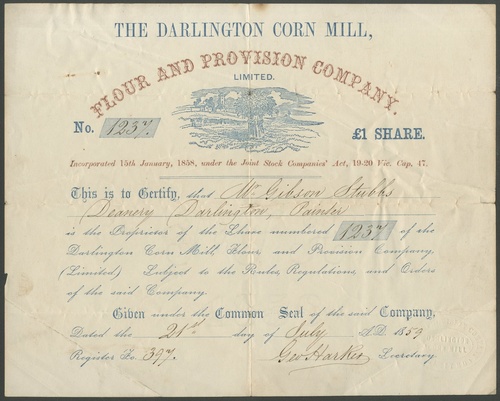 THE DARLINGTON CORN MILL,
FLOUR AND PROVISION COMPANY.
LIMITED.
No. 1237.
£1 SHARE.
Incorporated 15th January, 1858, under the Joint Stock Companies' Act, 19-20 Vic. Cap, 47.
This is to Certify, that Mr Gibson Stubbs
Deanery Darlington, Painter
is the Proprietor of the Share numbered 1237 of the
Darlington Corn Mill, Flour, and Provision Company,
(Limited,) Subject to the Rules, Regulations, and Orders
of the said Company.
Given under the Common Seal of the said Company,
Dated the 21st day of July A.D. 1859
Register Fo. 397.
Geo Harker Secretary.